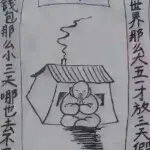 世界那么大五一才放三天假
钱包那么小三天哪也去不